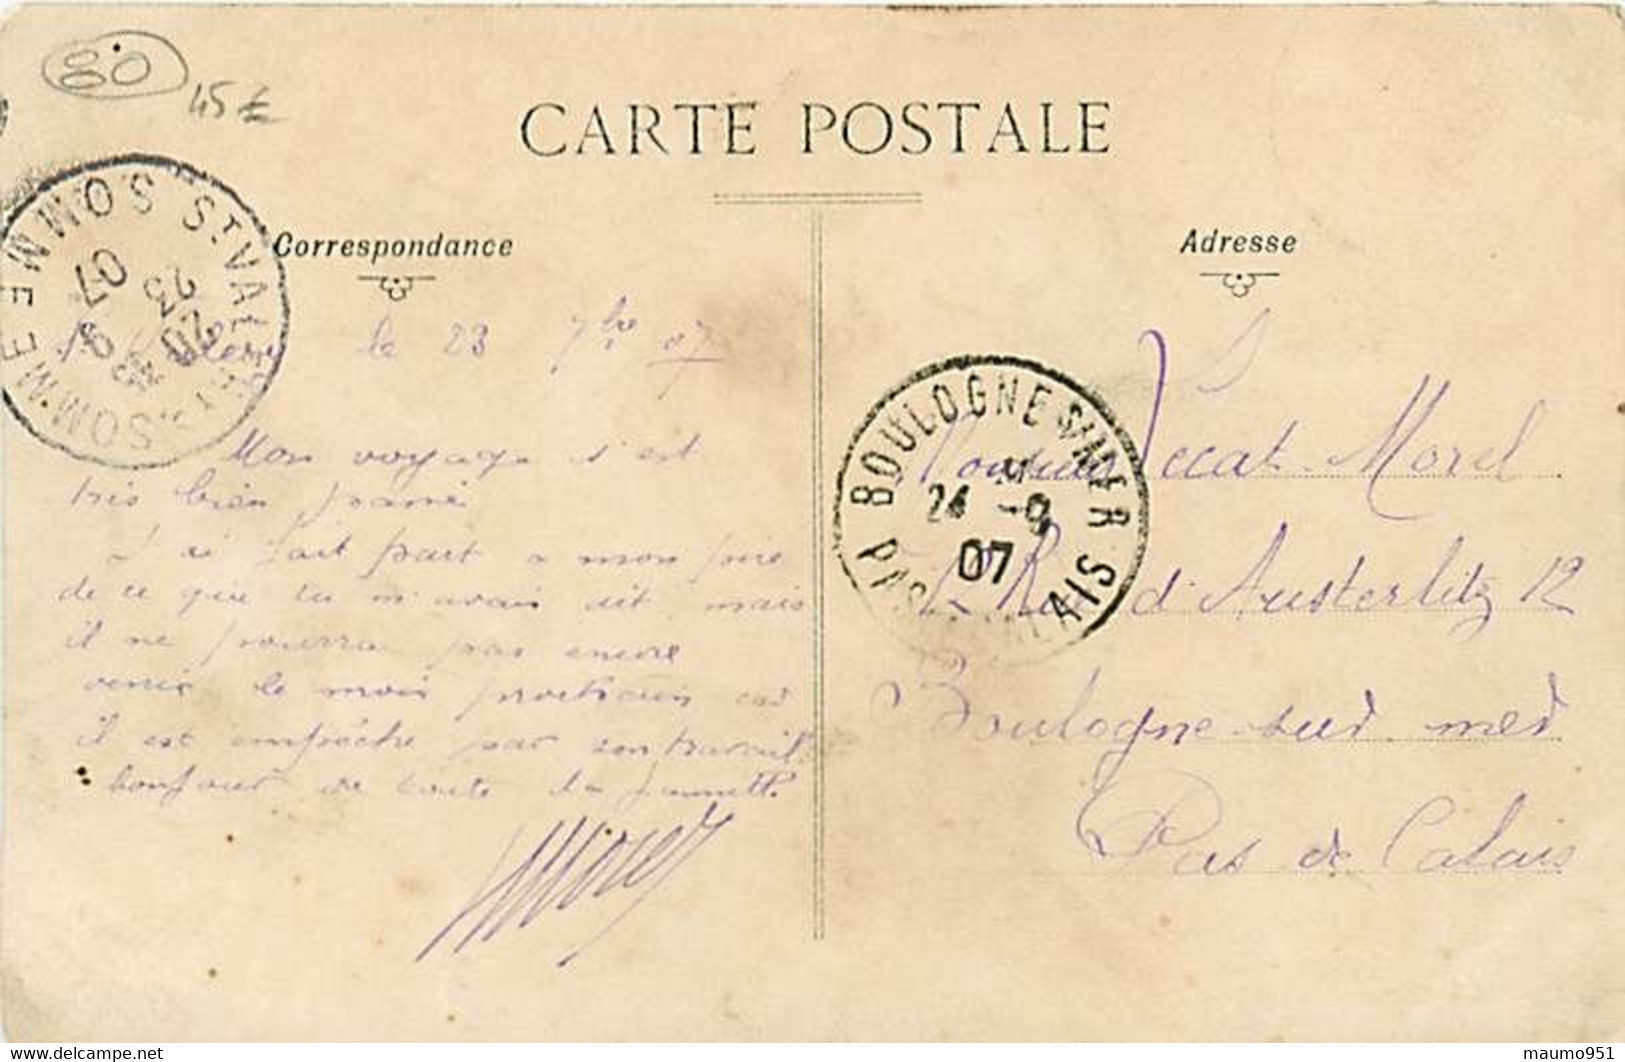 80
45€
CARTE POSTALE
Correspondance
Adresse
ST VALERY S. SOMME SOMME
20
23 9
07
St Valery le 23 7bre 07
Mon voyage s'est
très bien passé
J'ai fait part a mon père
de ce que tu m'avais dit mais
il ne pourra pas encore
venir le mois prochain car
il est empêché par son travail
bonjour de toute la
BOULOGNE S/MER
24 -9
07
PAS DE CALAIS
Monsieur Morel
12 Rue d'Austerlitz 12
Boulogne sur mer
Pas de Calais
maumo951